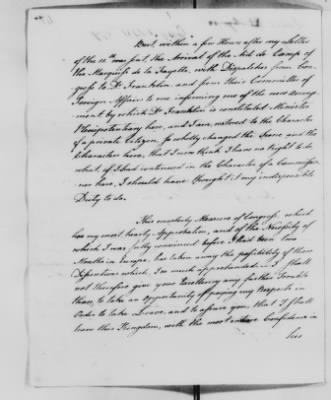 But within a few Hours after my Letter
of the 11th was sent, the Arrival of the Aid de Camp of
the Marquiss de la Fayette, with Dispatches from Con-
gress to Dr Franklin and from their Committee of
Foreign Affairs to me informing me of the new Arrange-
ment by which Dr Franklin is constituted Minister
Plenipotentiary here, and I am restored to the Character
of a private Citizen, so wholly changed the Scene and the
Characters here, that I now think I have no right to do
what if I had continued in the Character of a Commissio-
ner here, I should have thought it my indispensible
Duty to do.
This masterly Measure of Congress which
has my most hearty Approbation, and of the Necessity of
which I was fully convinced before I had been two
Months in Europe, has taken away the possibility of those
Dissentions which I so much apprehended. I shall
not therefore give your Excellency any further Trouble
than, to take an opportunity of paying my Respects in
Order to take Leave, and to assure you, that I shall
leave this Kingdom, with the most entire Confidence in
his